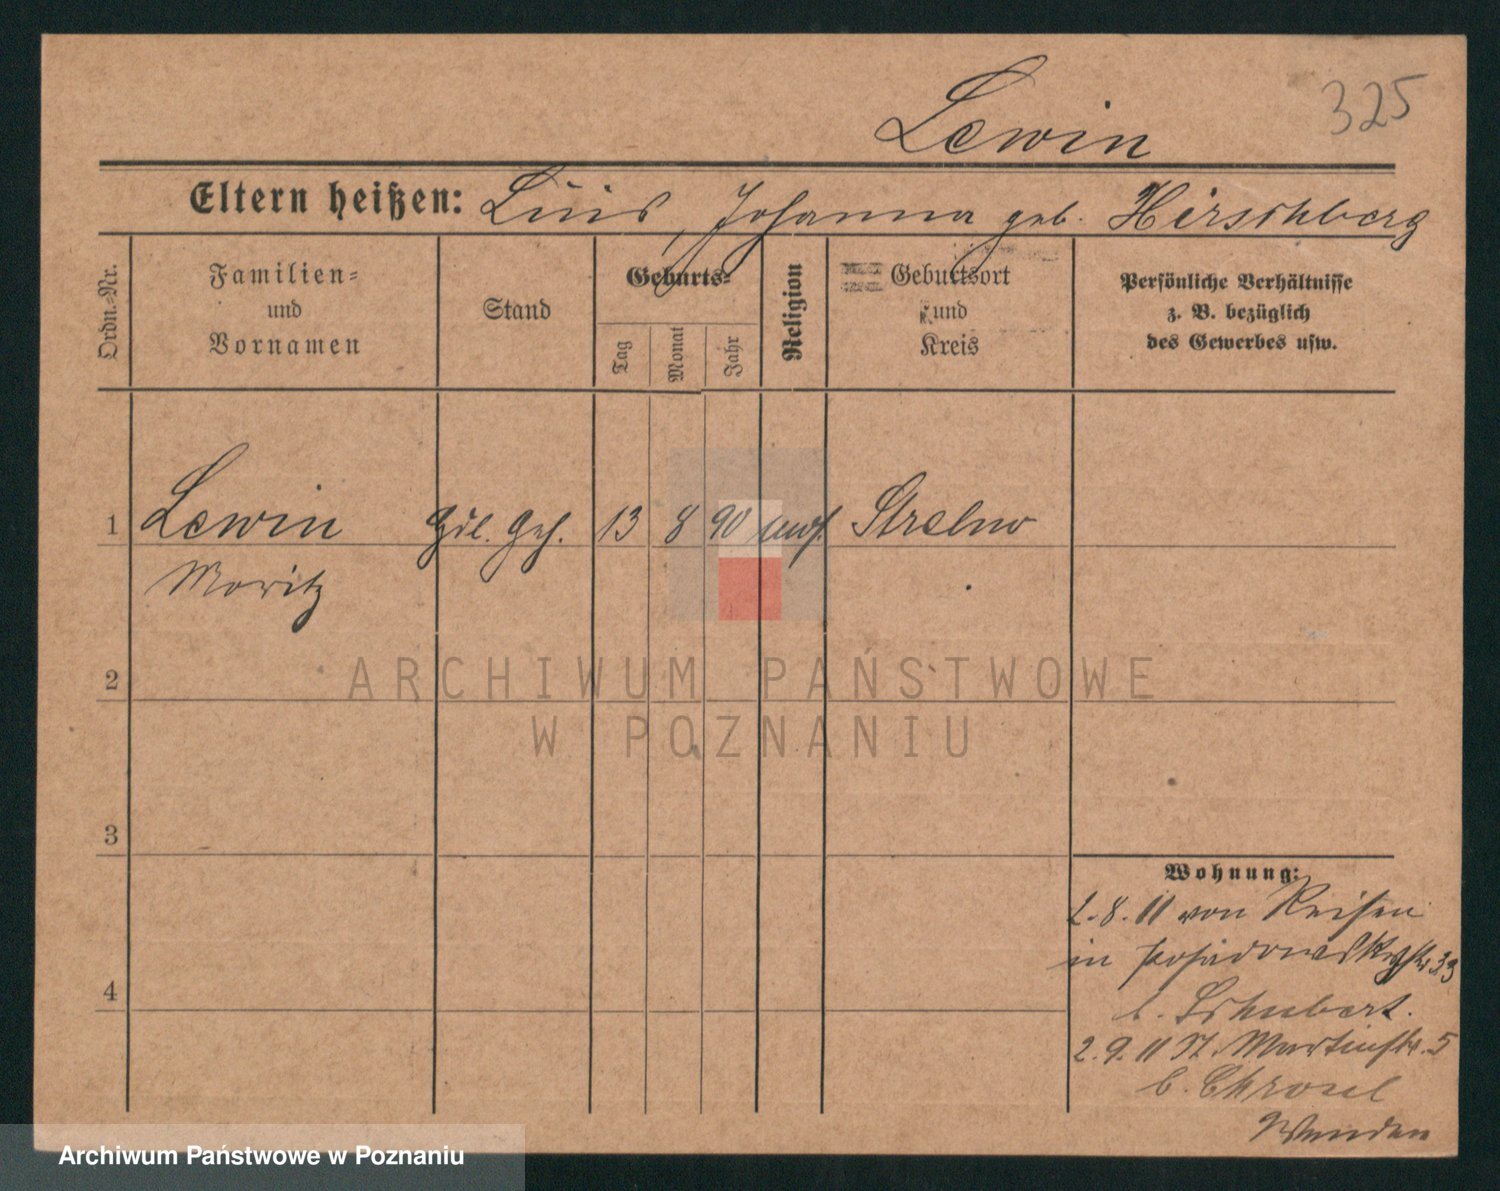 325
Lewin
Eltern heißen: Luis, Johanna geb. Hirschberg
Ordn.=Nr.
Familien=
und
Vornamen
Stand
Geburts=
Tag
Monat
Jahr
Religion
Geburtsort
und
Kreis
Persönliche Verhältnisse
z. B. bezüglich
des Gewerbes usw.
1
Lewin
Moritz
Hdl. Geh.
13
8
90
Strelno
2
3
4
Wohnung:
2.8.11 von Reisen
in Posadowskystr. 33
b. Schubert.
2.9.11 St. Martinstr. 5
b.
Wenden
ARCHIWUM PAŃSTWOWE
W POZNANIU
Archiwum Państwowe w Poznaniu